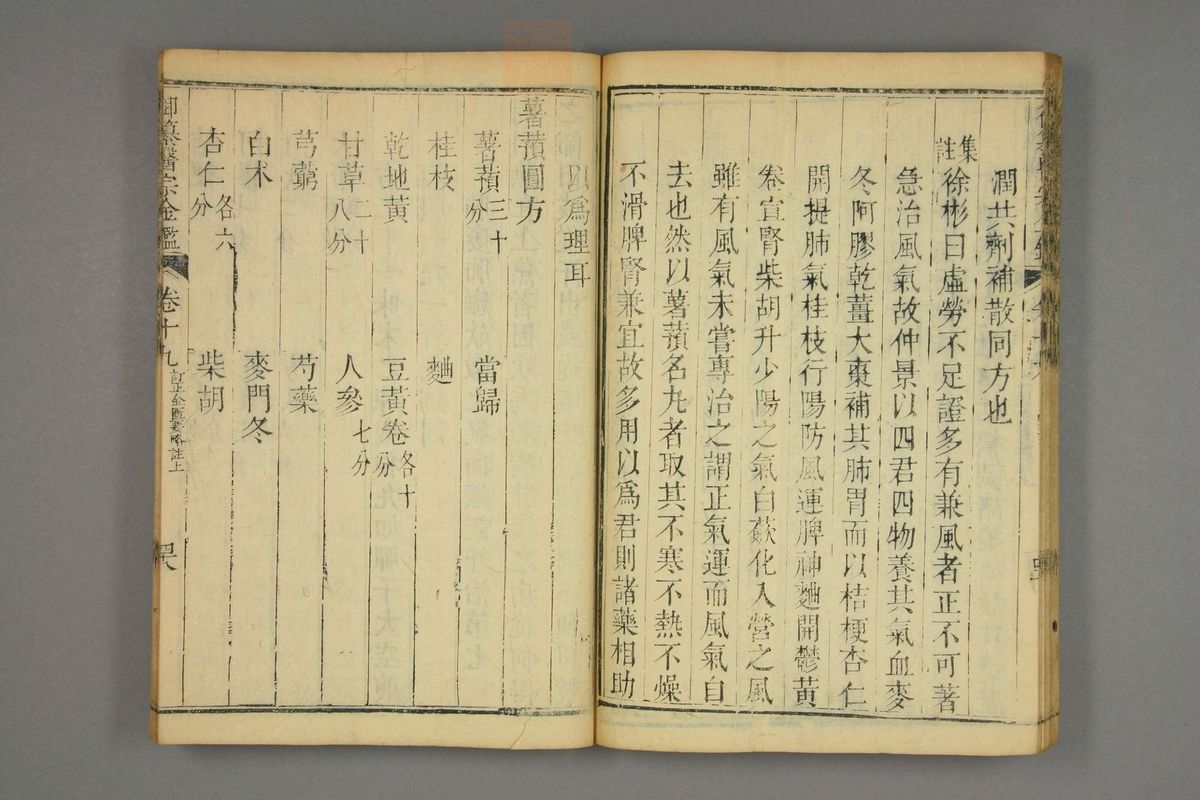 潤共劑補散同方也
集註徐彬曰虛勞不足證多有兼風者正不可著
急治風氣故仲景以四君四物養其氣血麥
冬阿膠乾薑大棗補其肺胃而以桔梗杏仁
開提肺氣桂枝行陽防風運脾神麯開鬱黃
卷宣腎柴胡升少陽之氣白蘞化入營之風
雖有風氣未嘗專治之謂正氣運而風氣自
去也然以薯蕷名丸者取其不寒不熱不燥
不滑脾腎兼宜故多用以爲君則諸藥相助
以爲理耳
薯蕷圓方
薯蕷三十分 當歸
桂枝 麯
乾地黃 豆黃卷各十分
甘草二十八分 人參七分
芎藭 芍藥
白朮 麥門冬
杏仁各六分 柴胡
御纂醫宗金鑑 卷十九 訂正金匱要略註上 罕